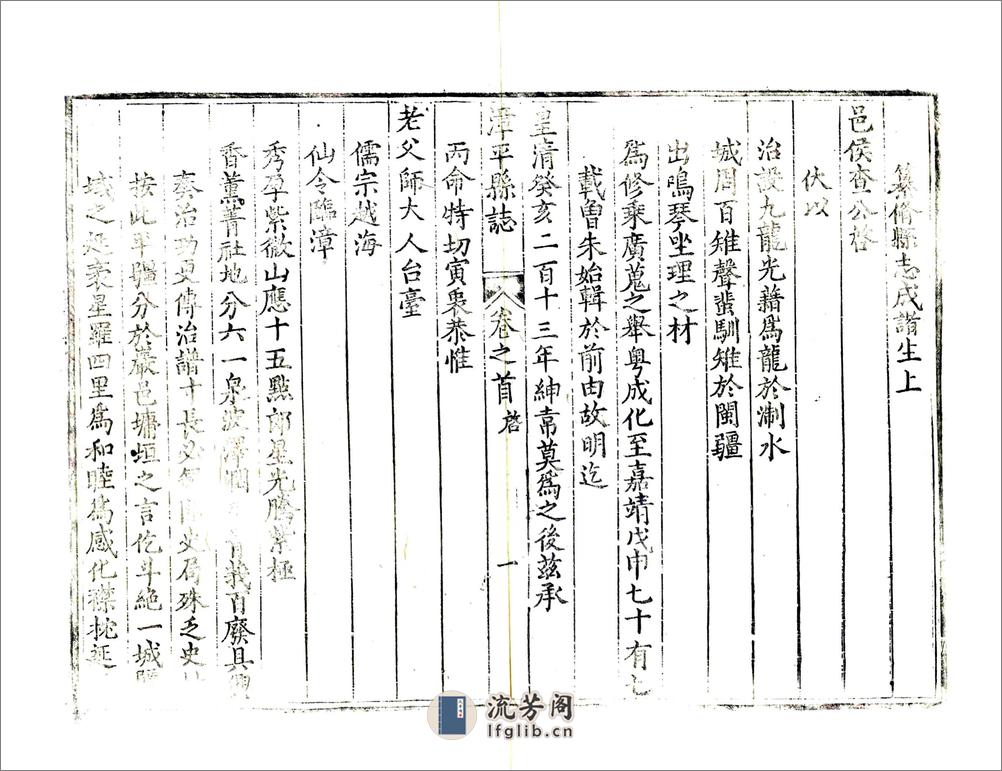 纂脩縣志成諸生上
邑侯查公啓
伏以
治設九龍光藉為龍於淛水
城周百雉聲蜚馴雉於閩疆
出鳴琴坐理之材
為修乗廣蒐之舉粤成化至嘉靖戊申七十有七
載曽朱始輯於前由故明迄
皇清癸亥二百十三年紳耆莫為之後茲承
漳平縣誌
卷之首
啓
一
丙命特切寅衷恭惟
老父師大人台臺
儒宗越海
仙令臨漳
秀孕紫微山應十五㸃郎星光騰紫極
香薰菁社地分六一泉波澤
百廢具
奏治功更傳治譜
長
史局殊乏史
按此平疆分於巖邑墉垣之言仡斗絶一城
域之延袤星羅四里為和睦為感化襟枕延
流芳阁
lfglib.cn